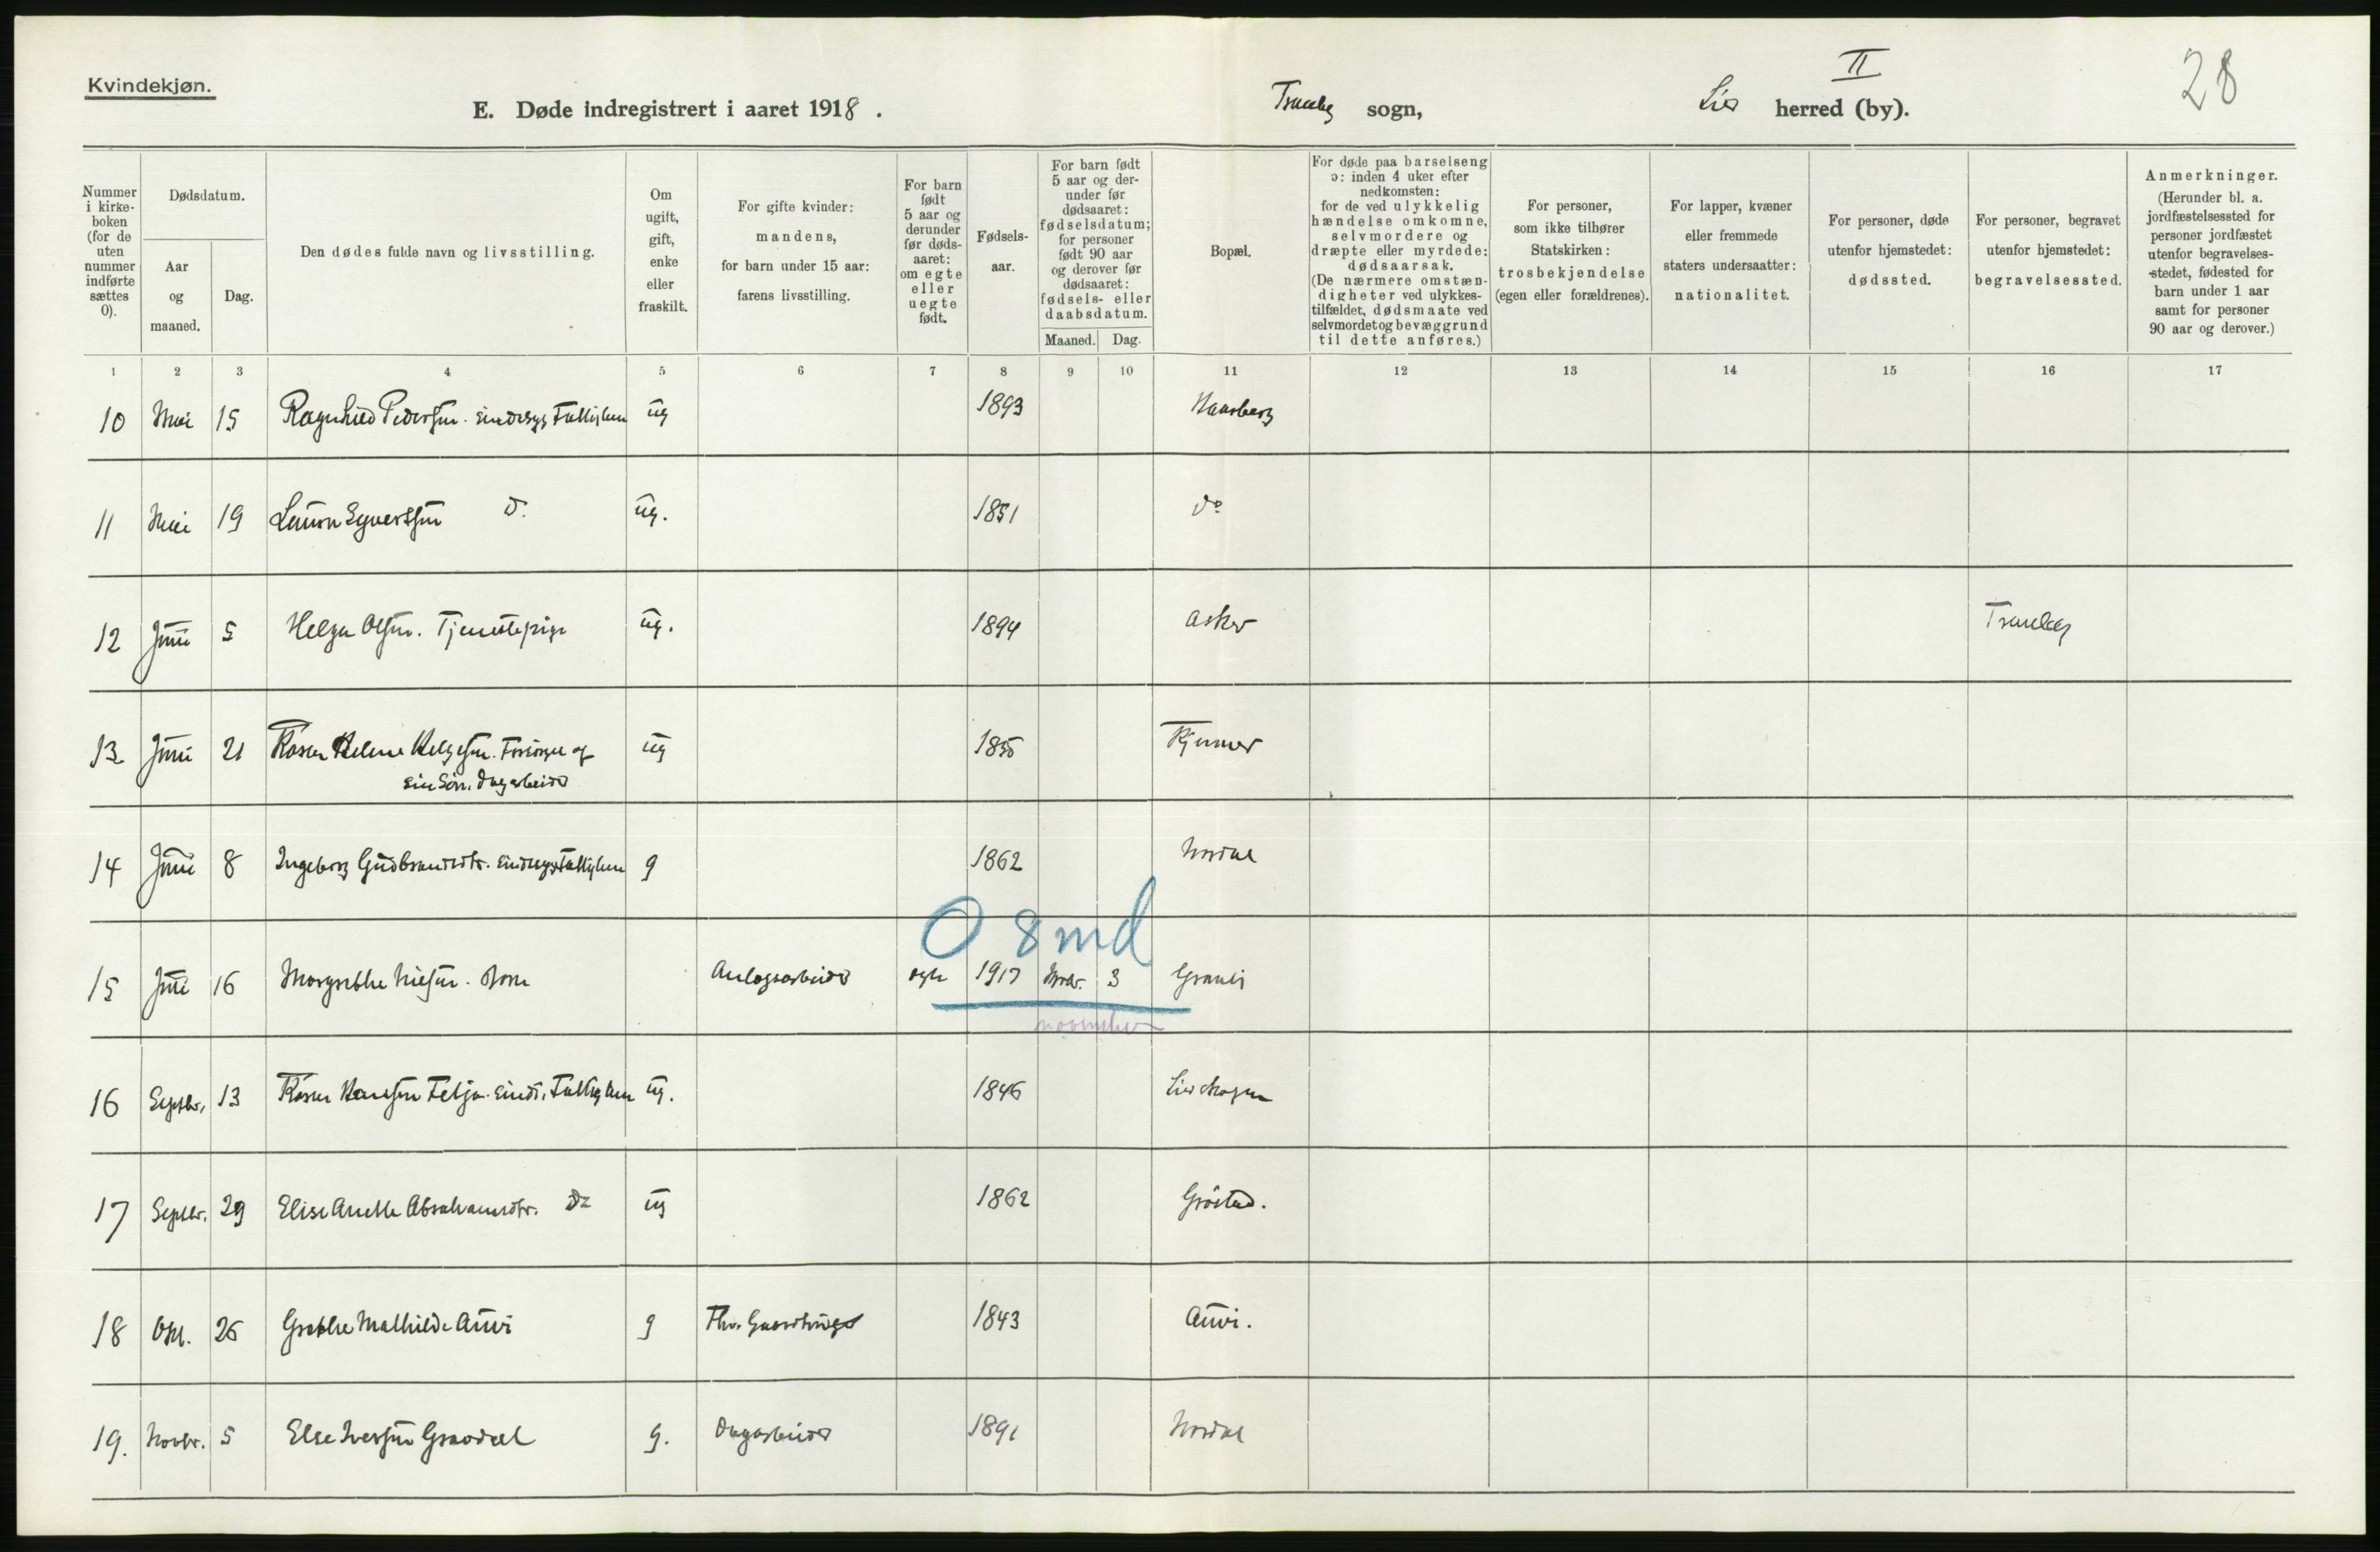 Kvindekjøn.
II
28
E. Døde indregistrert i aaret 1918.
Tranby sogn,
Lier herred (by).
Nummer i kirke-boken (for de uten nummer indførte sættes 0).
Dødsdatum.
Aar og maaned.
Dag.
Den dødes fulde navn og livsstilling.
Om ugift, gift, enke eller fraskilt.
For gifte kvinder: mandens, for barn under 15 aar: farens livsstilling.
For barn født 5 aar og derunder før døds-aaret: om egte eller uegte født.
Fødsels-aar.
For barn født 5 aar og der-under før dødsaaret: fødselsdatum; for personer født 90 aar og derover før dødsaaret: fødsels- eller daabsdatum.
Maaned. Dag.
Bopæl.
For døde paa barselseng ɔ: inden 4 uker efter nedkomsten: for de ved ulykkelig hændelse omkomne, selvmordere og dræpte eller myrdede: dødsaarsak. (De nærmere omstæn-digheter ved ulykkes-tilfældet, dødsmaate ved selvmordet og bevæggrund til dette anføres.)
For personer, som ikke tilhører Statskirken: trosbekjendelse (egen eller forældrenes).
For lapper, kvæner eller fremmede staters undersaatter: nationalitet.
For personer, døde utenfor hjemstedet: dødssted.
For personer, begravet utenfor hjemstedet: begravelsessted.
Anmerkninger. (Herunder bl. a. jordfæstelsessted for personer jordfæstet utenfor begravelses-stedet, fødested for barn under 1 aar samt for personer 90 aar og derover.)
1 2 3 4 5 6 7 8 9 10 11 12 13 14 15 16 17
10 Mai 15 Ragnhild Pedersen. Sindssyg Fattiglem ug 1893 Haarberg
11 Mai 19 Laura Syversen d. ug. 1851 do
12 Juni 5 Helga Olsen. Tjenestepige ug. 1894 Asker Tranby
13 Juni 21 Karen Helene Helgesen. Forsörges af ug 1850 Kjenner
sin Sön. Dagarbeider
14 Juni 8 Ingeborg Gudbrandsdtr. Sindssyg Fattiglem g 1862 Nordal
0 8 md
15 Juli 16 Margrethe Nielsen. Barn Anlegsarbeider egte 1917 Novbr. 3 Granli
november
16 Septbr. 13 Karen Hansen Felja. Sinds. Fattiglem ug. 1846 Lierskogen
17 Septbr. 29 Elise Anette Abrahamsdtr. do ug 1862 Gröstad.
18 Okt. 26 Grethe Mathilde Auvi g Fhv. Gaardbruger 1843 Auvi.
19. Novbr. 5 Else Iversen Graodal g. Dagarbeider 1891 Nordal